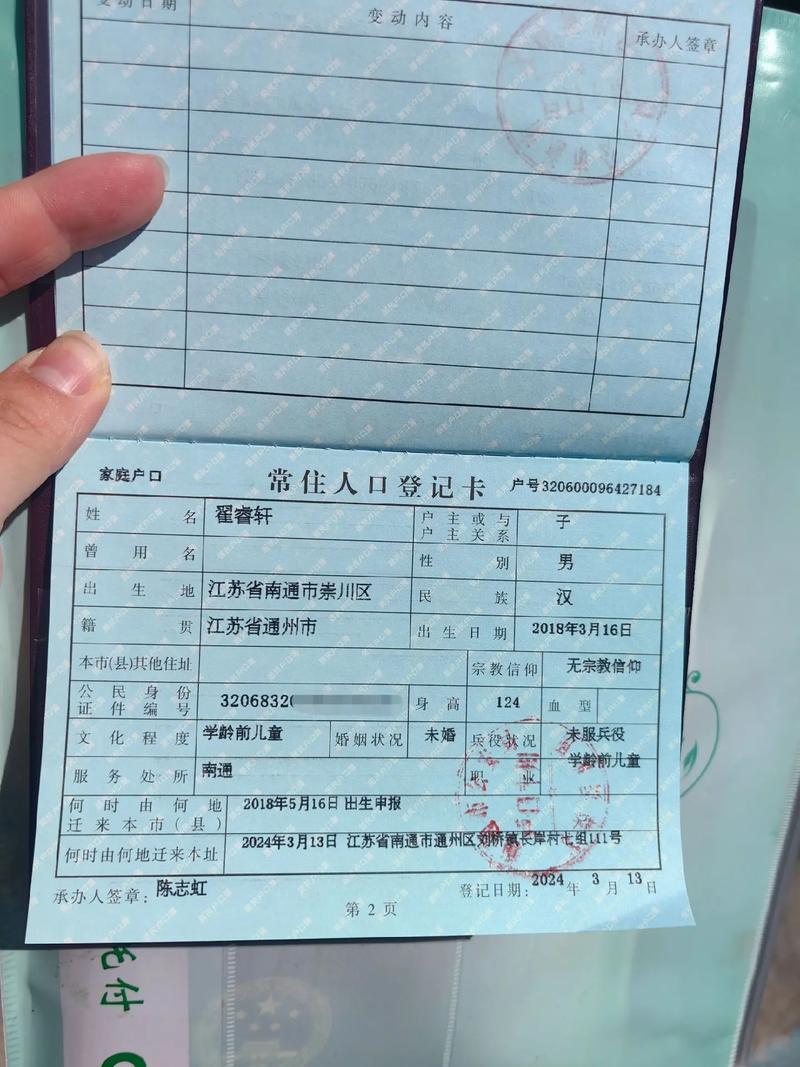 变动日期 变动内容 承办人签章
家庭户口 常住人口登记卡 户号320600096427184
姓名 翟睿轩 户主或与户主关系 子
曾用名 性别 男
出生地 江苏省南通市崇川区 民族 汉
籍贯 江苏省通州市 出生日期 2018年3月16日
本市(县)其他住址 宗教信仰 无宗教信仰
公民身份证件编号 32068320 身高 124 血型
文化程度 学龄前儿童 婚姻状况 未婚 兵役状况 未服兵役
服务处所 南通 职业 学龄前儿童
何时由何地迁来本市(县) 2018年5月16日 出生申报
何时由何地迁来本址 2024年3月13日 江苏省南通市通州区刘桥镇长岸村七组111号
承办人签章：陈志虹 登记日期：2024年3月13日
第2页
付